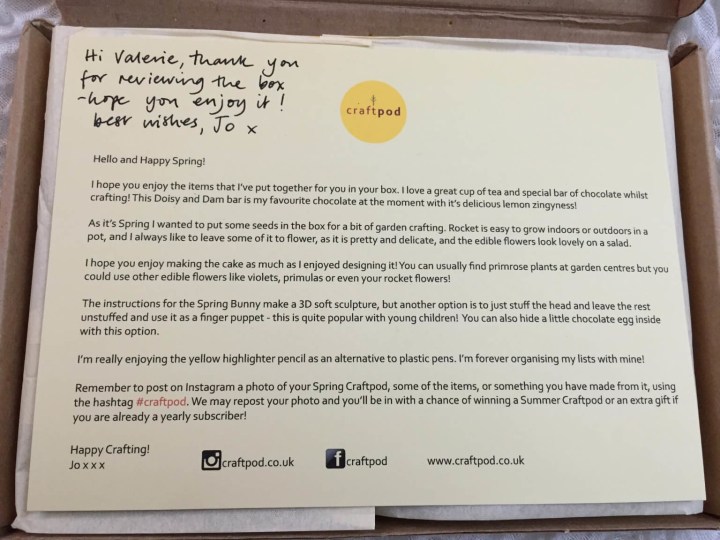 Hi Valerie, thank you
for reviewing the box
-hope you enjoy it!
best wishes, Jo x
craftpod
Hello and Happy Spring!
I hope you enjoy the items that I've put together for you in your box. I love a great cup of tea and special bar of chocolate whilst
crafting! This Doisy and Dam bar is my favourite chocolate at the moment with it's delicious lemon zingyness!
As it's Spring I wanted to put some seeds in the box for a bit of garden crafting. Rocket is easy to grow indoors or outdoors in a
pot, and I always like to leave some of it to flower, as it is pretty and delicate, and the edible flowers look lovely on a salad.
I hope you enjoy making the cake as much as I enjoyed designing it! You can usually find primrose plants at garden centres but you
could use other edible flowers like violets, primulas or even your rocket flowers!
The instructions for the Spring Bunny make a 3D soft sculpture, but another option is to just stuff the head and leave the rest
unstuffed and use it as a finger puppet - this is quite popular with young children! You can also hide a little chocolate egg inside
with this option.
I'm really enjoying the yellow highlighter pencil as an alternative to plastic pens. I'm forever organising my lists with mine!
Remember to post on Instagram a photo of your Spring Craftpod, some of the items, or something you have made from it, using
the hashtag #craftpod. We may repost your photo and you'll be in with a chance of winning a Summer Craftpod or an extra gift if
you are already a yearly subscriber!
Happy Crafting!
Jo x x x
craftpod.co.uk
f craftpod
www.craftpod.co.uk